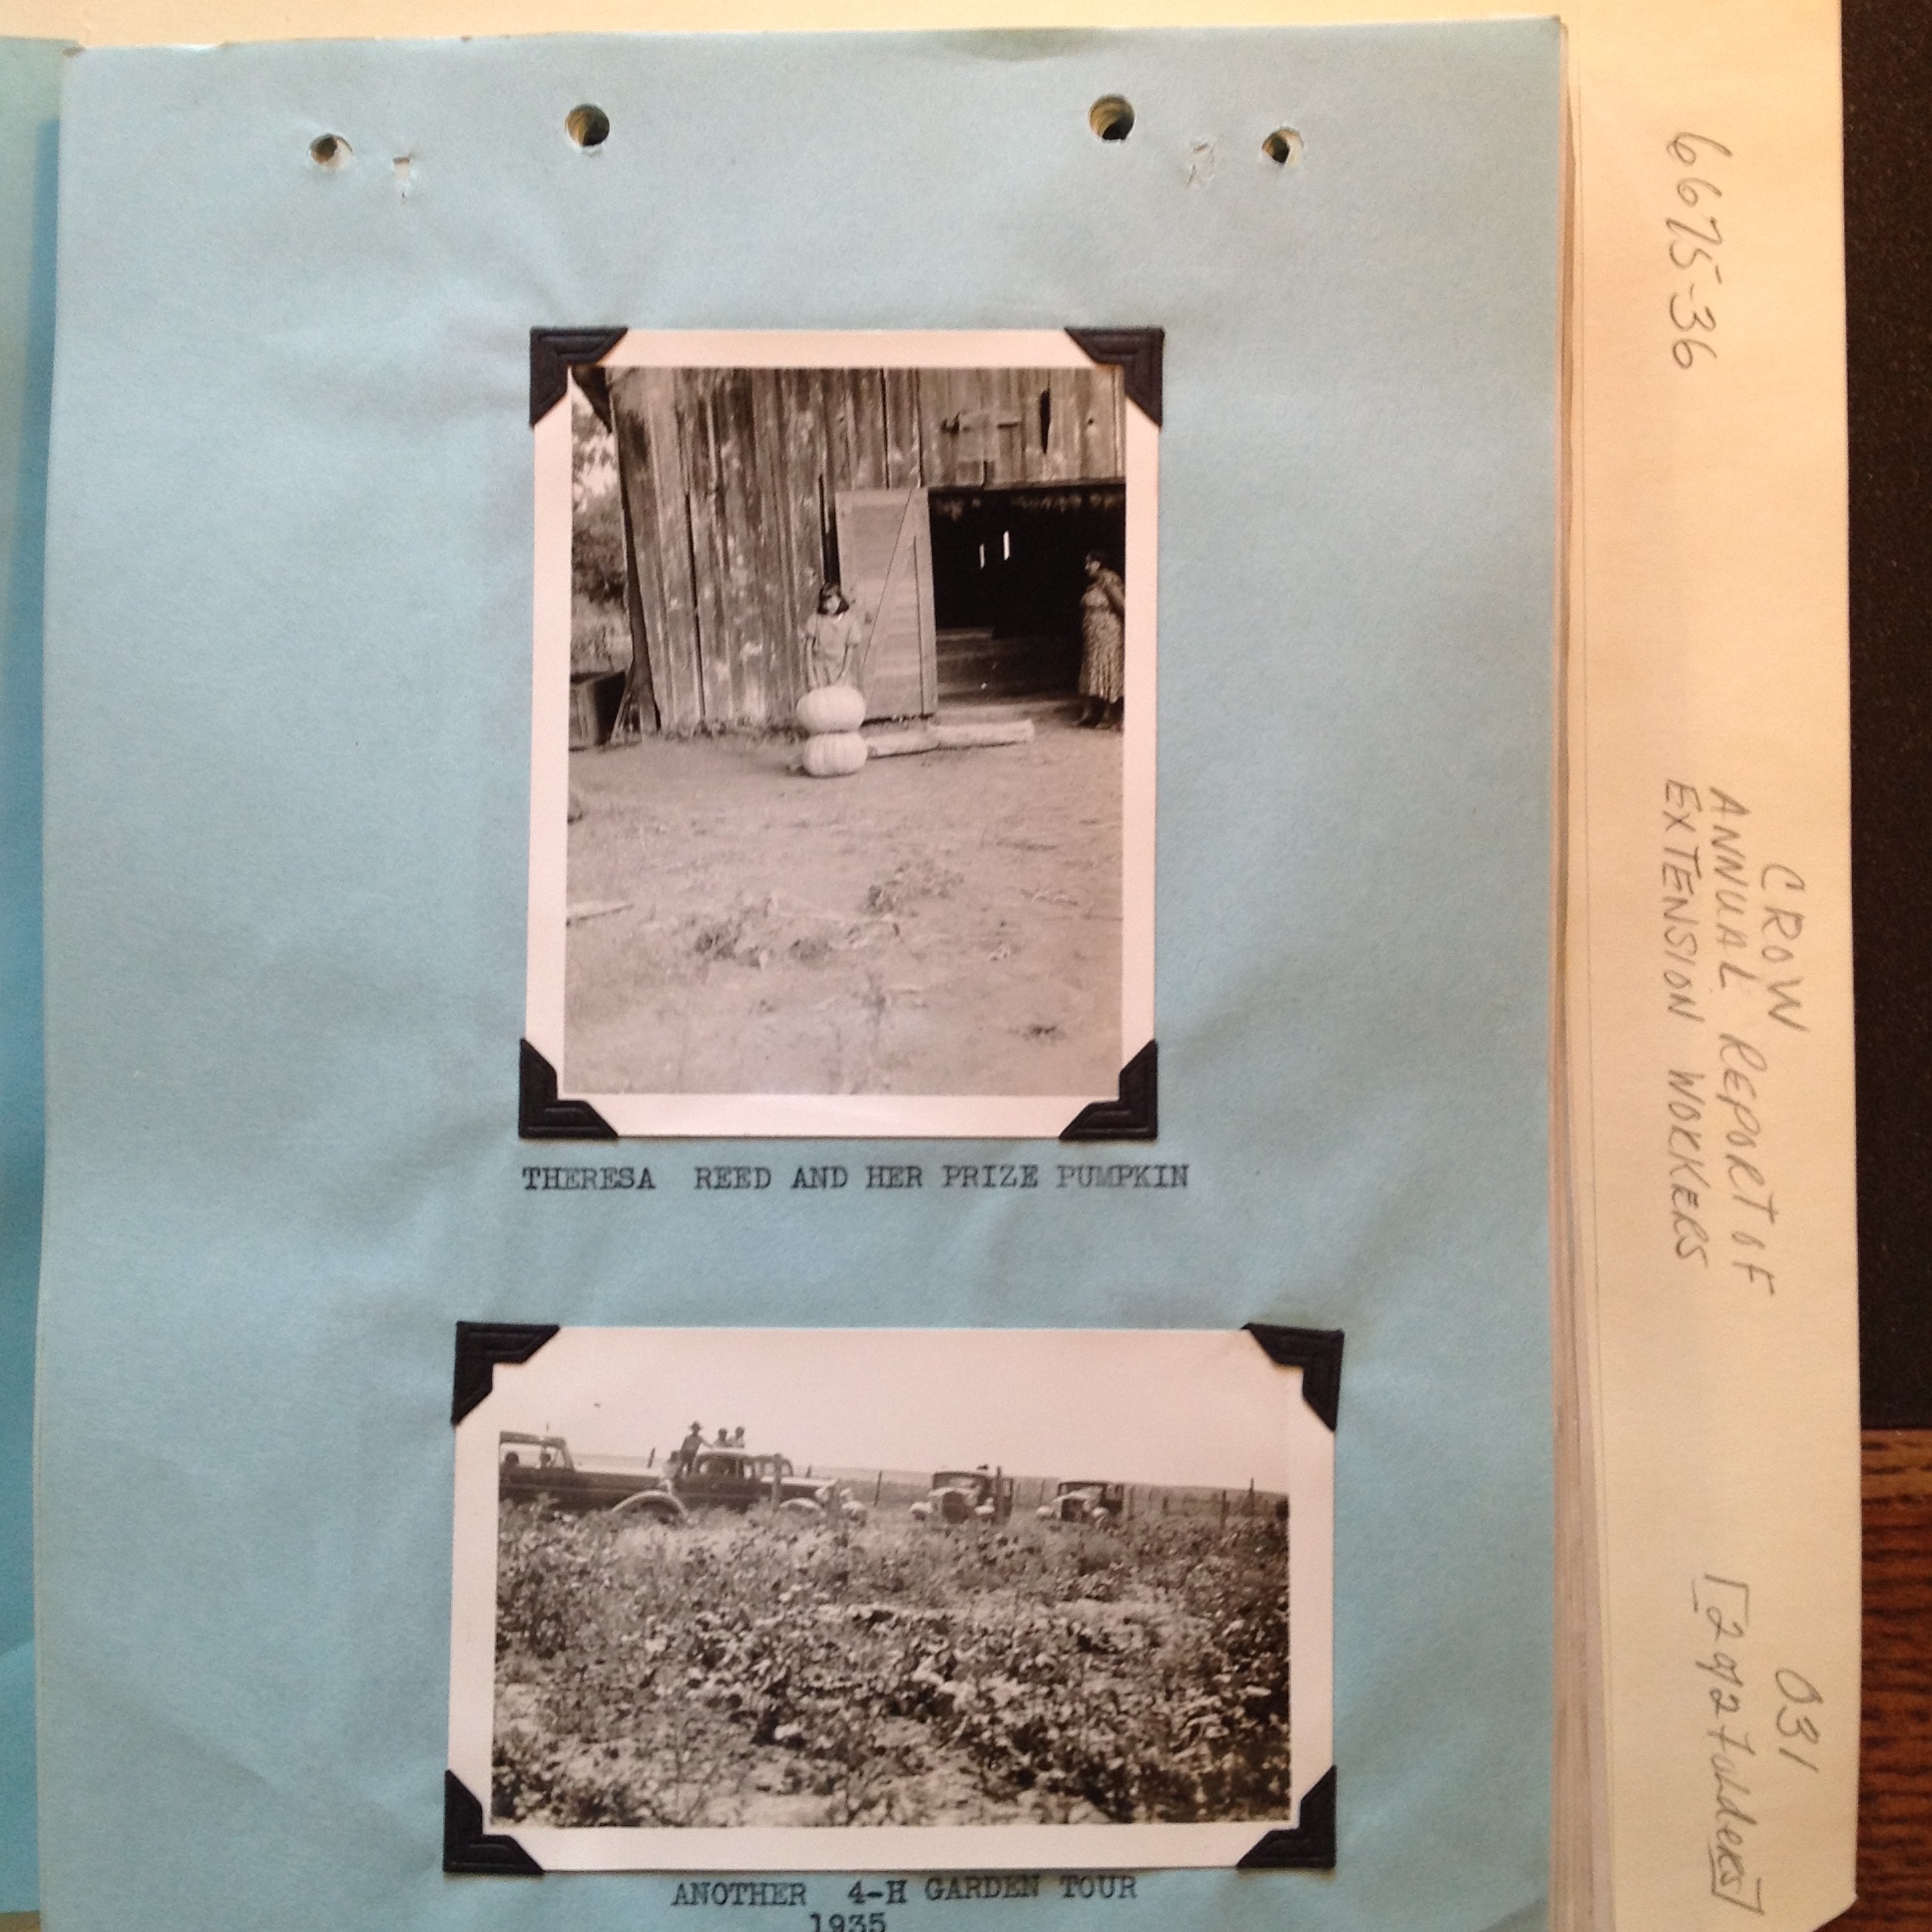 THERESA REED AND HER PRIZE PUMPKIN
ANOTHER 4-H GARDEN TOUR
1935
6675-36
CROW
ANNUAL REPORT OF
EXTENSION WORKERS
031
[2 of 2 folders]